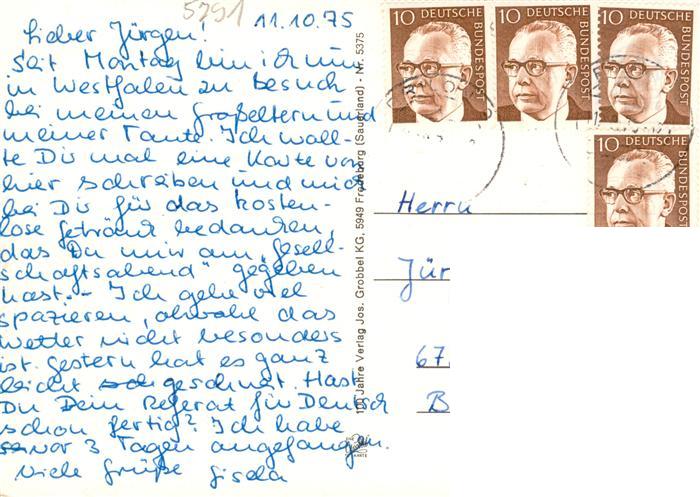 5291
11.10.75
Lieber Jürgen!
Seit Montag bin ich nun
in Westfalen zu Besuch
bei meinen Großeltern und
meiner Tante. Ich woll-
te Dir mal eine Karte von
hier schreiben und mich
bei Dir für das kosten-
lose Getränk bedanken,
das Du mir am „Gesell-
schaftsabend“ gegeben
hast. - Ich gehe viel
spazieren, obwohl das
Wetter nicht besonders
ist. Gestern hat es ganz
leicht geschneit. Hast
Du Dein Referat für Deutsch
schon fertig? Ich habe
vor 3 Tagen angefangen.
Viele Grüße Gisela
100 Jahre Verlag Jos. Grobbel KG, 5949 Fredeburg (Sauerland) · Nr. 5375
10 DEUTSCHE BUNDESPOST
10 DEUTSCHE BUNDESPOST
10 DEUTSCHE BUNDESPOST
10 DEUTSCHE BUNDESPOST
Herrn
Jür
67
B